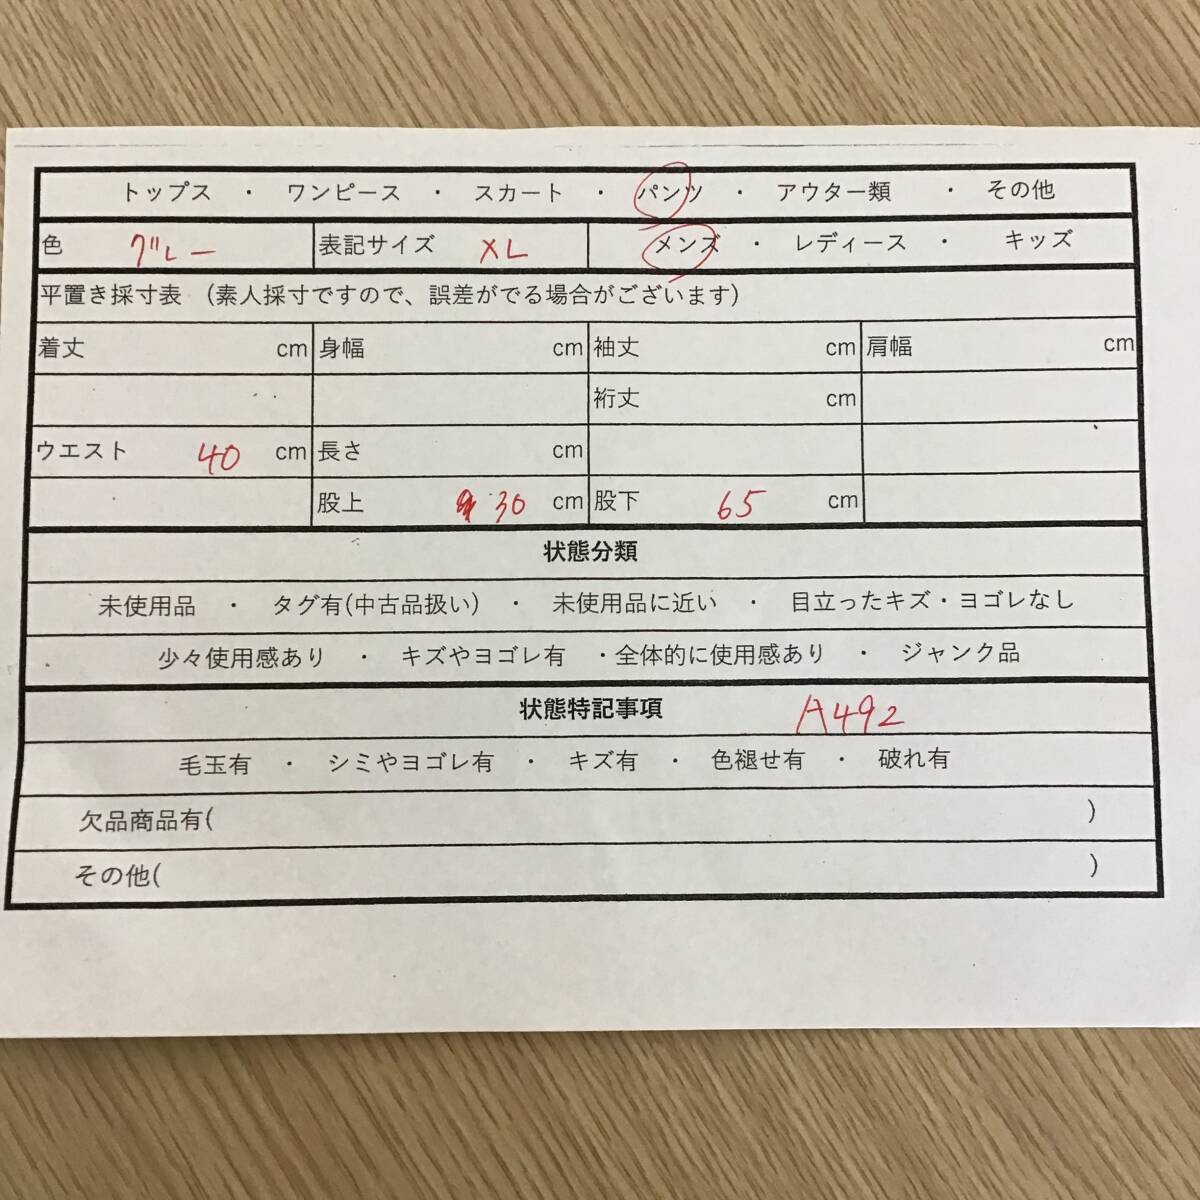 トップス ・ ワンピース ・ スカート ・ パンツ ・ アウター類 ・ その他
色 グレー 表記サイズ XL メンズ ・ レディース ・ キッズ
平置き採寸表 (素人採寸ですので、誤差がでる場合がございます)
着丈 cm 身幅 cm 袖丈 cm 肩幅 cm
裄丈 cm
ウエスト 40 cm 長さ cm
股上 30 cm 股下 65 cm
状態分類
未使用品 ・ タグ有(中古品扱い) ・ 未使用品に近い ・ 目立ったキズ・ヨゴレなし
少々使用感あり ・ キズやヨゴレ有 ・全体的に使用感あり ・ ジャンク品
状態特記事項 A492
毛玉有 ・ シミやヨゴレ有 ・ キズ有 ・ 色褪せ有 ・ 破れ有
欠品商品有( )
その他( )